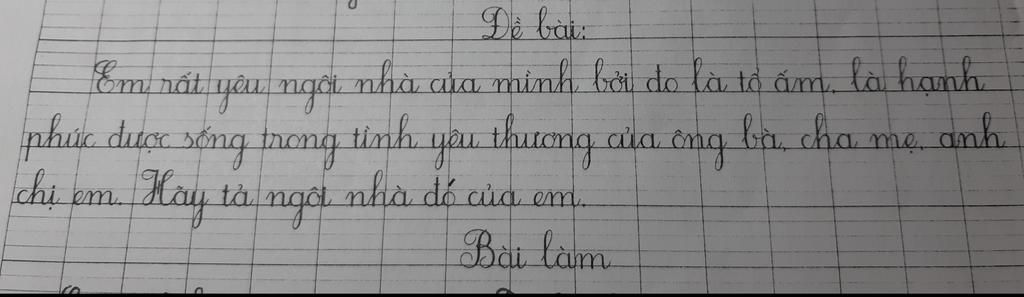 Đề bài:
Em rất yêu ngôi nhà của mình bởi đó là tổ ấm, là hạnh
phúc được sống trong tình yêu thương của ông bà, cha mẹ, anh
chị em. Hãy tả ngôi nhà đó của em.
Bài làm